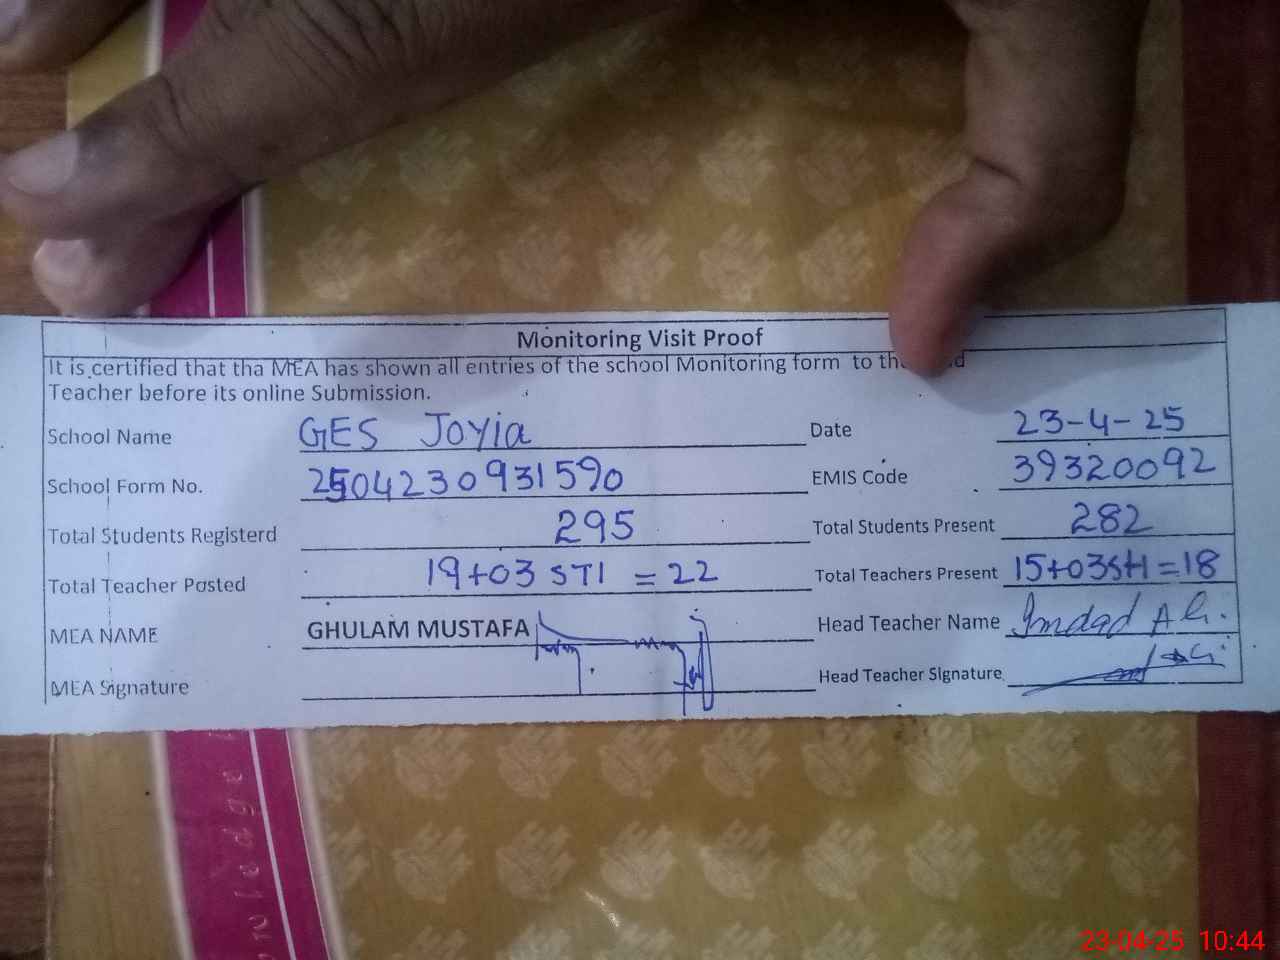 Monitoring Visit Proof
It is certified that tha MEA has shown all entries of the school Monitoring form to the
Teacher before its online Submission.
School Name GES Joyia Date 23-4-25
School Form No. 2504230931590 EMIS Code 39320092
Total Students Registerd 295 Total Students Present 282
Total Teacher Posted 19+03 STI = 22 Total Teachers Present 15+03STI=18
MEA NAME GHULAM MUSTAFA Head Teacher Name Imdad Ali.
MEA Signature Head Teacher Signature
23-04-25 10:44